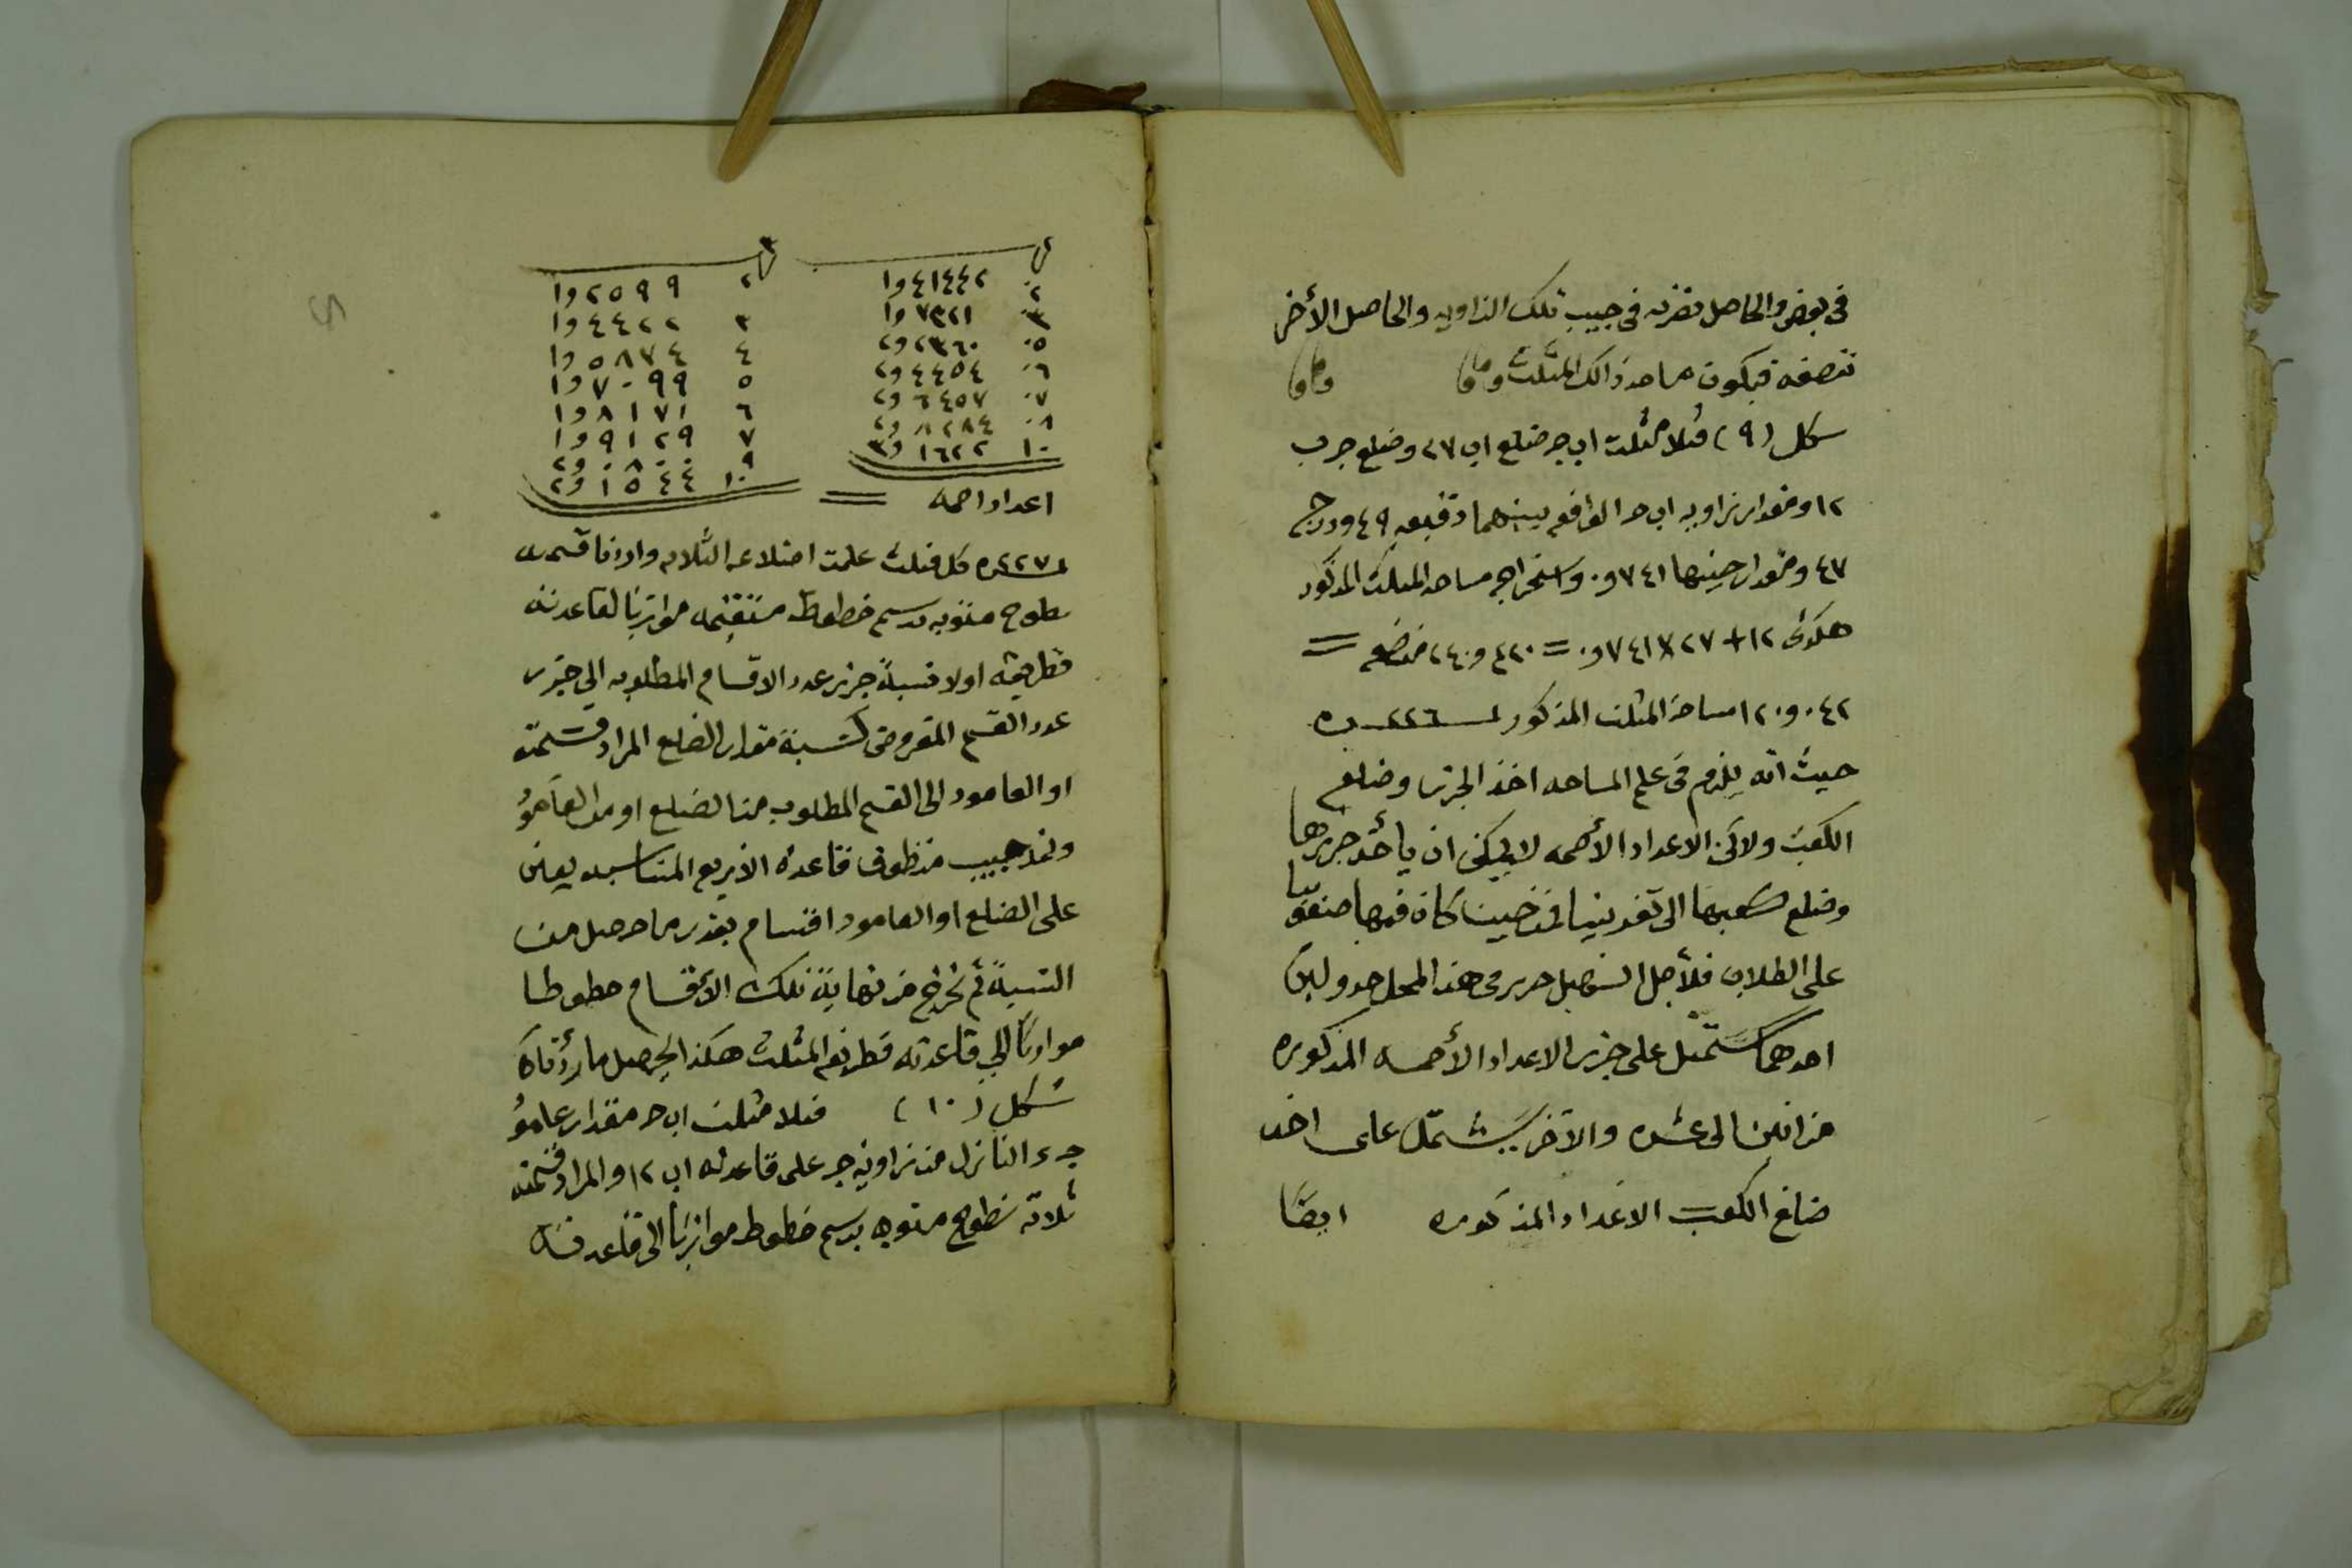 في بعض والحاصل نضربه في جيب تلك الزاويه والحاصل الأخر
ننصفه فيكون مساحة ذالك المثلث
شكل (٩) مثلا مثلث ابج ضلع اب ٢٧ وضلع جب
١٢ ومقدار زاويه ابح الواقعه بينهما دقيقه ٤٩ ودرج
٤٧ ومقدار جيبها ٧٤١و٠ واستخراجه مساحه المثلث المذكور
هكذى ١٢ + ٢٧ × ٧٤١و٠ =
٠٤٢و١٢٠ مساحة المثلث المذكور ٢٢٦
حيث انه يلزم في علم المساحه اخذ الجزر وضلع
الكعب ولاكن الاعداد الأصمه لا يمكن ان يأخذ جزرها
وضلع كعبها الى تقريبا فمن حيث كان فيها صعوبا
على الطلاب فلأجل التسهيل حرر في هذا المحل جدولين
احدهما يشتمل على جزر الاعداد الأصمه المذكوره
من اثنين الى عشره والآخر يشتمل على اخذ
ضلع الكعب الاعداد المذكوره ايضًا
٢ ٤١٤٤٢و١
٣ ٧٣٢١و١
٥ ٢٣٦٠و٢
٦ ٤٤٥٤و٢
٧ ٦٤٥٧و٢
٨ ٨٢٨٤و٢
١٠ ١٦٢٢و٣
اعداد اصمه
٣
٢ ٢٥٩٩و١
٣ ٤٤٢٢و١
٤ ٥٨٧٤و١
٥ ٧٠٩٩و١
٦ ٨١٧١و١
٧ ٩١٢٩و١
٩ ٠٨٠٠و٢
١٠ ١٥٤٤و٢
٢٢٧ كل مثلث علمت اضلاعه الثلاثه واردنا قسمته
سطوح متنوبه برسم خطوط مستقيمه موازيا لقاعدته
فطريقه اولا نسبة جزر عدد الاقسام المطلوبه الي جزر
عدد القسم المفروض كنسبة مقدار الضلع المراد قسمته
او العامود الى القسم المطلوب من الضلع او من العامود
قاعدة الأربع المتناسبه يعين
على الضلع او العامود اقسام بقدر ما حصل من
النسبة ثم نخرج من نهاية تلك الأقسام خطوطا
موازيًا الي قاعدته المثلث هكذا يحصل ما اردناه
شكل (١٠) مثلا مثلث ابح مقدار عامود
جء النازل من زاوية جـ على قاعدته اب ١٢ والمراد قسمته
ثلاثه سطوح متنوبه برسم خطوط موازيًا الى قاعدته